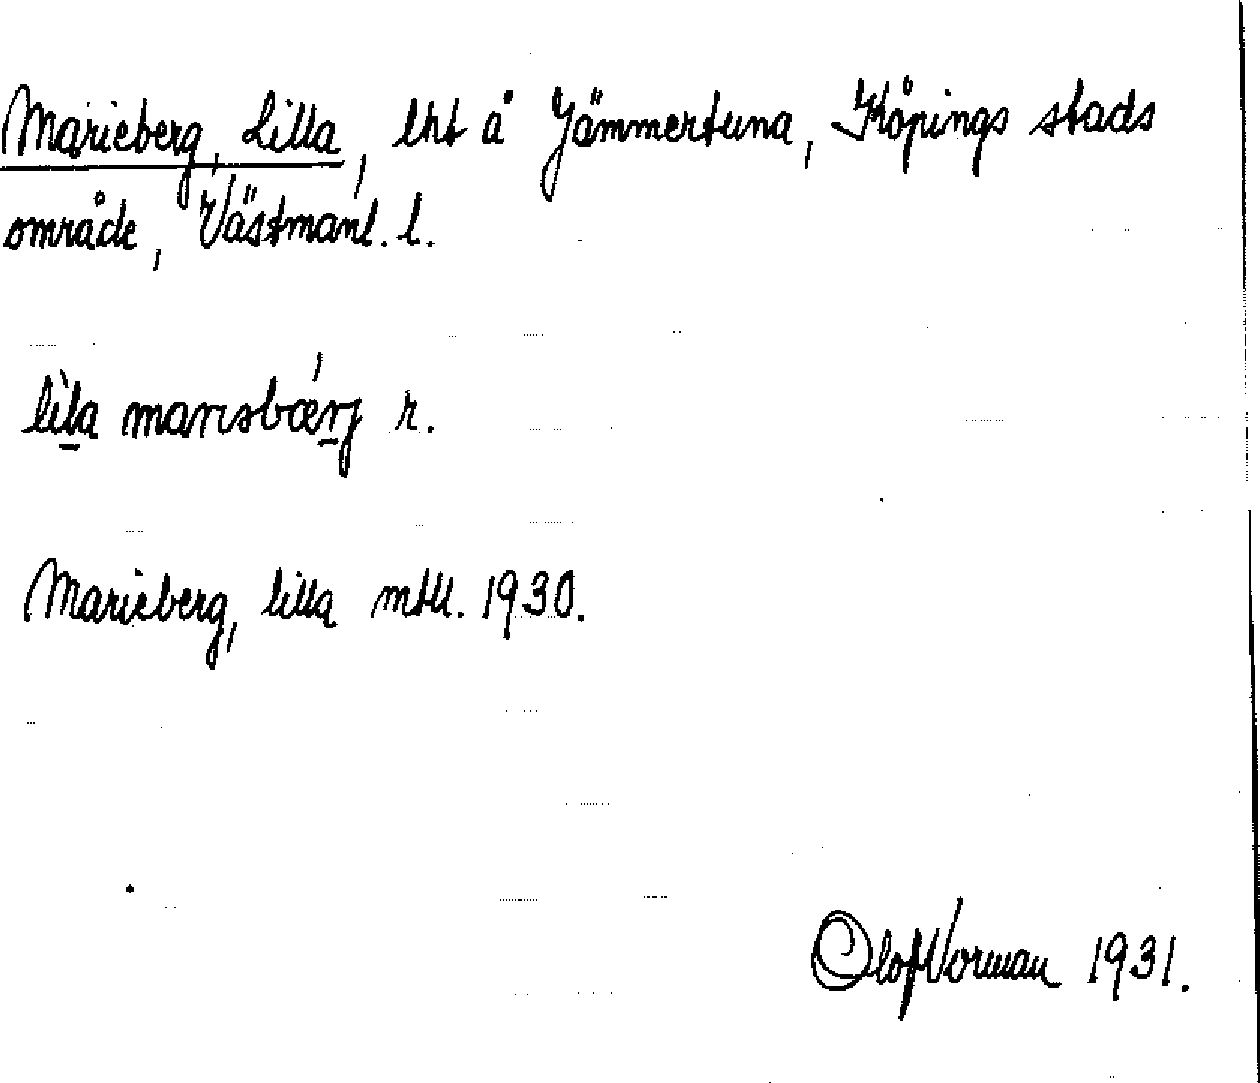 Marieberg, Lilla, lht å Jämmertuna, Köpings stads
område, Västmanl. l.
lìl̲a marisbǽr̲j r.
Marieberg, lilla mtll. 1930.
Olof Norman 1931.